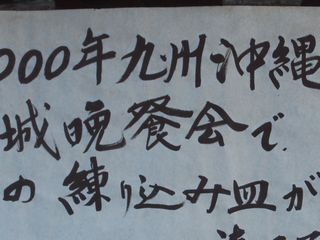 000年九州沖縄
城晩餐会で
の練り込み皿が